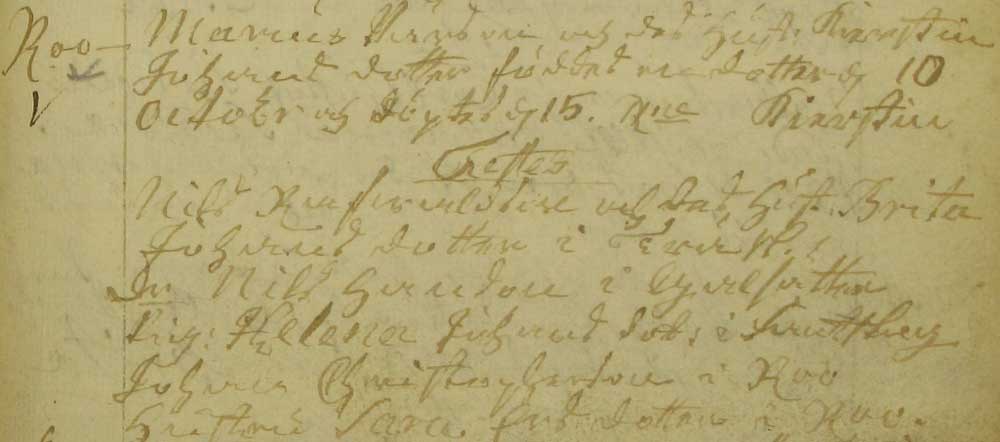 Roo Marcus Pärsson och dess Hust. Kierstin
Johans dotter föddes en dotter d 10
October och döptes d 15. Nne Kierstin
Testes
Nils och des Hust. Brita
Johans dotter i
Dr Nils Hansson i
Pig. Helena Johans dotr i
Johan Christophersson i Roo
Hustru Sara Ersdotter i Roo.